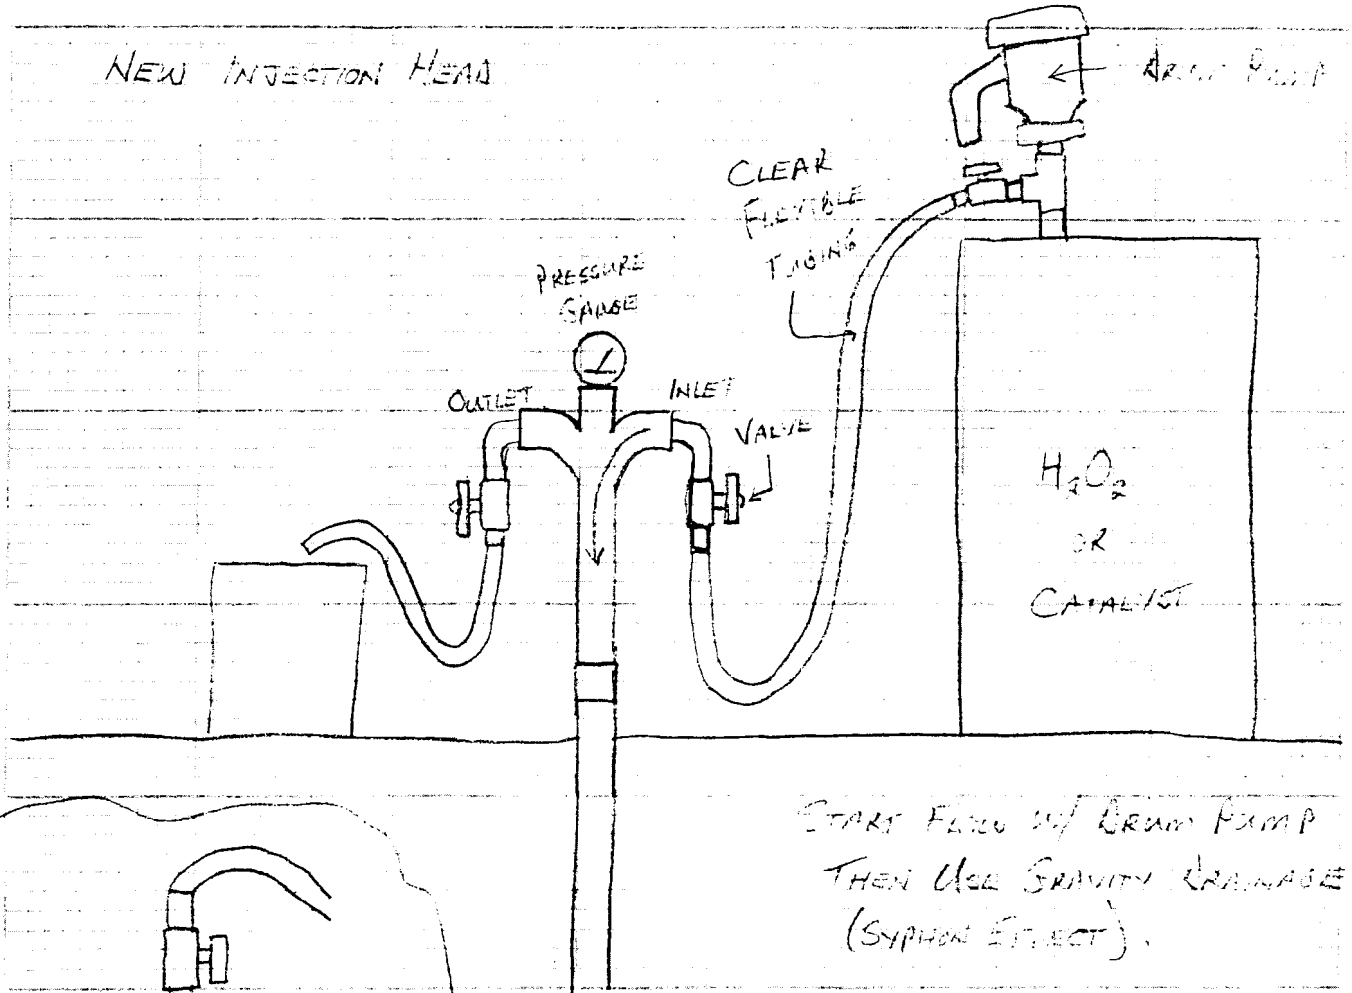 NEW INJECTION HEAD
DRUM PUMP
CLEAR
FLEXIBLE
TUBING
PRESSURE
GAUGE
OUTLET
INLET
VALVE
H₂O₂
OR
CATALYST
START FLOW W/ DRUM PUMP
THEN USE GRAVITY DRAINAGE
(SYPHON EFFECT).